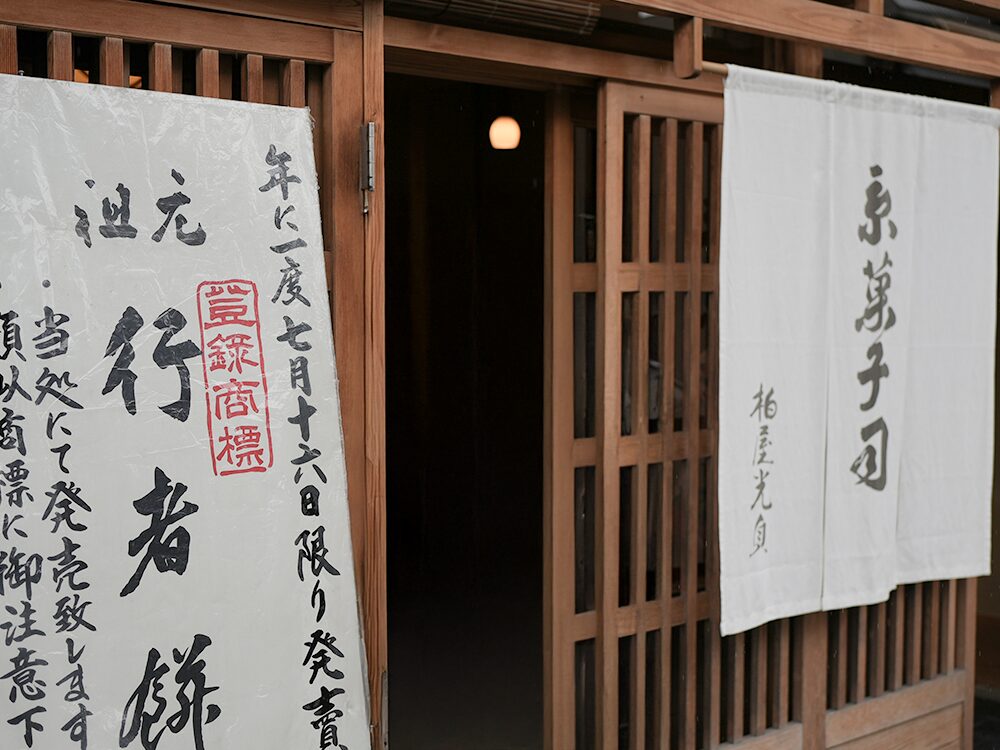 年に一度七月十六日限り発売
登録商標
元祖
行者餅
・当処にて発売致します
須以商標に御注意下
京菓子司
柏屋光貞